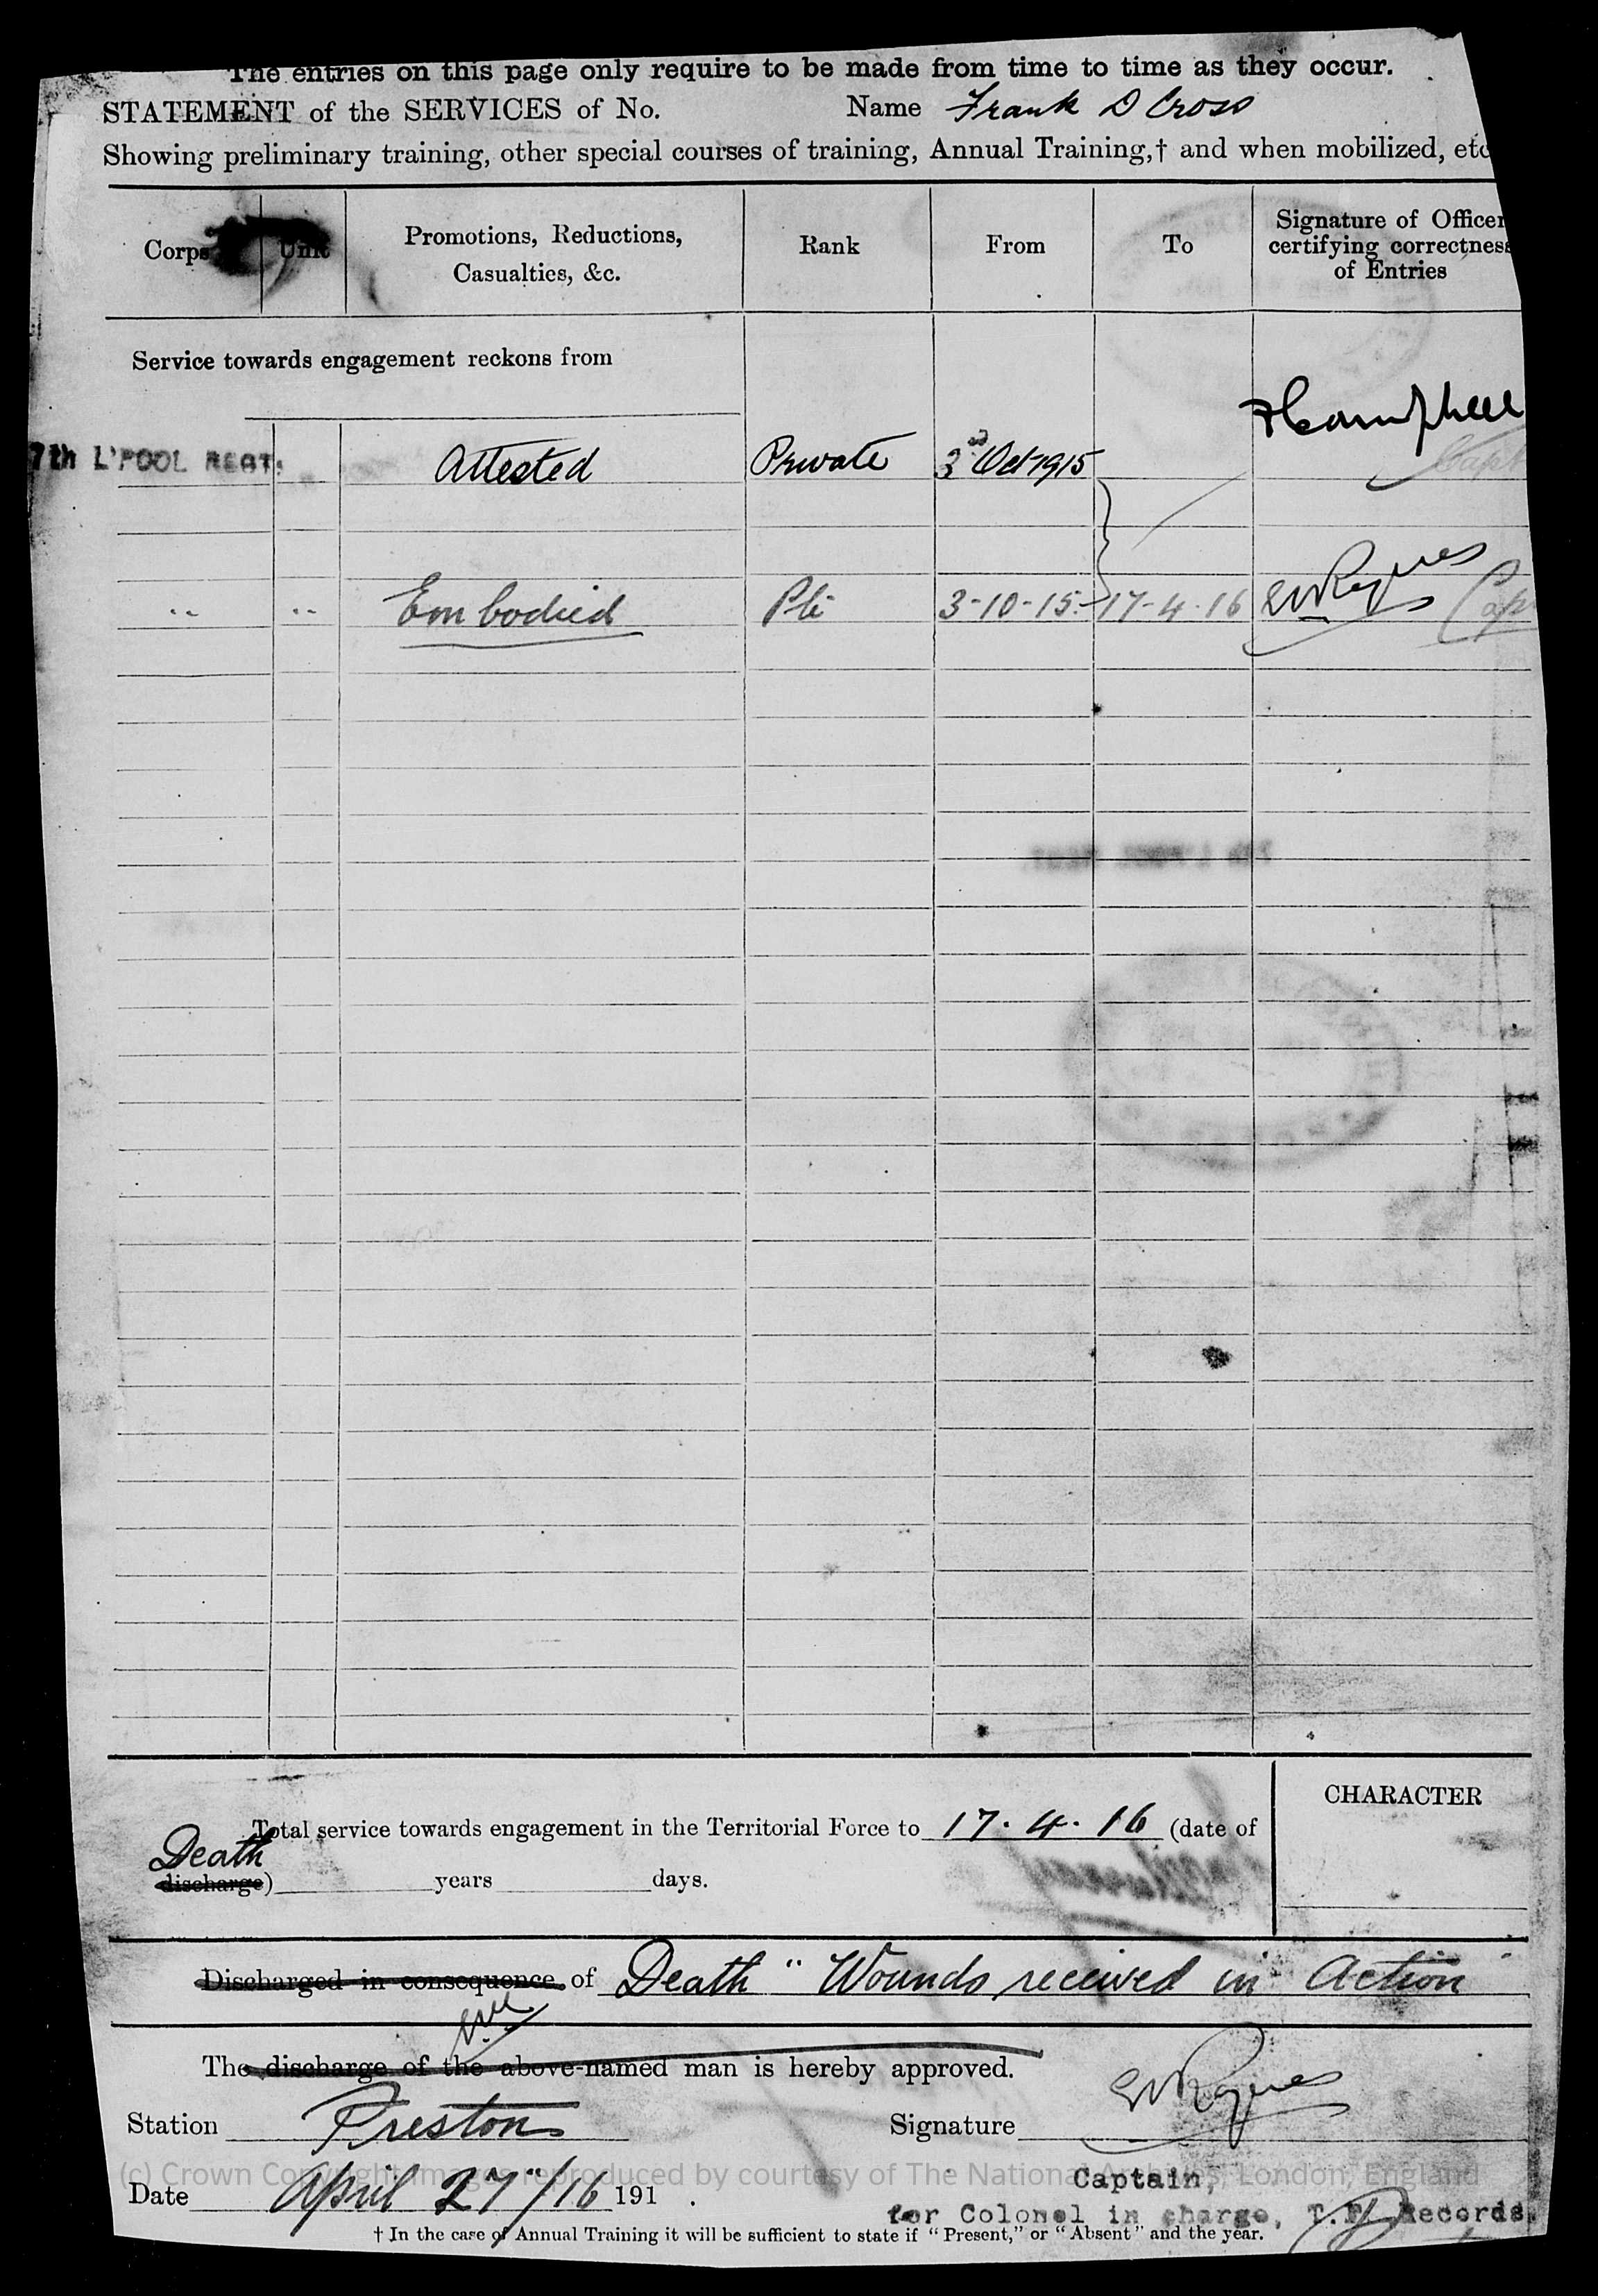 The entries on this page only require to be made from time to time as they occur.
STATEMENT of the SERVICES of No. Name Frank D Cross
Showing preliminary training, other special courses of training, Annual Training,† and when mobilized, etc
Corps Unit Promotions, Reductions, Casualties, &c. Rank From To Signature of Officer certifying correctness of Entries
Service towards engagement reckons from
7th L'POOL REGT. Attested Private 3rd Oct 1915 Campbell Capt
" " Embodied Pte 3-10-15. 17-4-16 Cap
CHARACTER
Total service towards engagement in the Territorial Force to 17.4.16 (date of
Death
discharge) years days.
Discharged in consequence of Death "Wounds received in Action"
The discharge of the above-named man is hereby approved.
Station Preston Signature
Captain,
Date April 27"/16 191 .
for Colonel in charge, T.F. Records.
† In the case of Annual Training it will be sufficient to state if "Present," or "Absent" and the year.
(c) Crown Copyright Images reproduced by courtesy of The National Archives, London, England